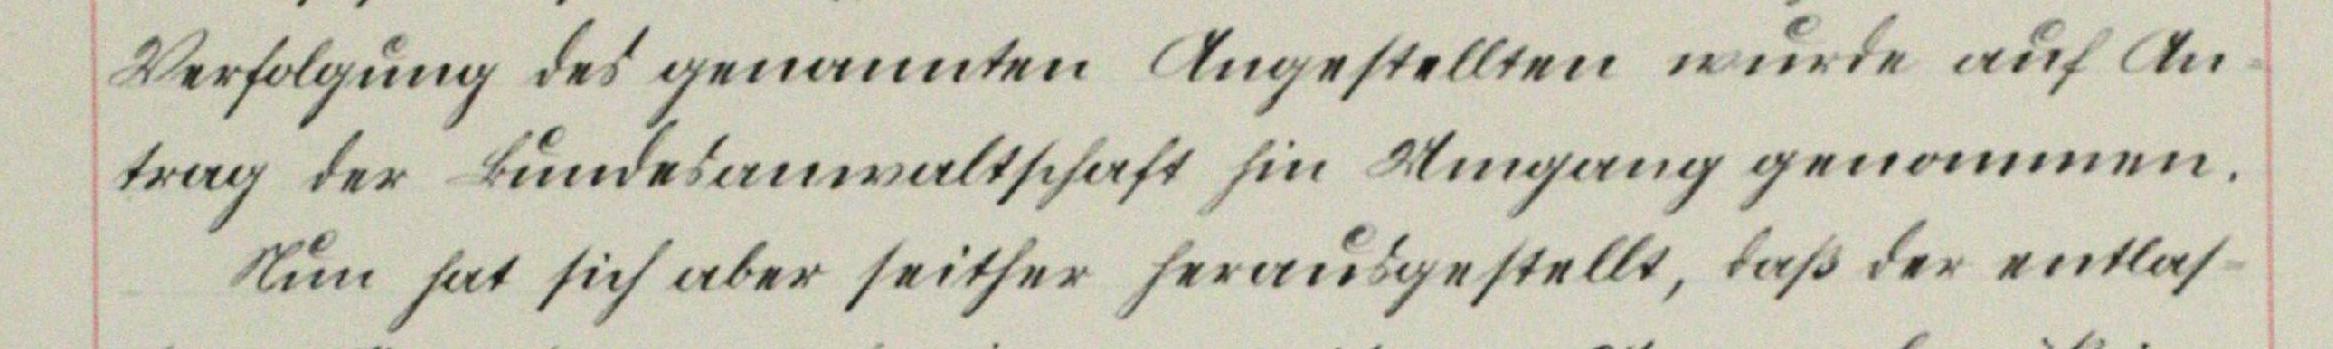 Verfolgung des genannten Angestellten wurde auf An-
trag der Bundesanwaltschaft hin Umgang genommen.
Nun hat sich aber seither herausgestellt, daß der entlas-